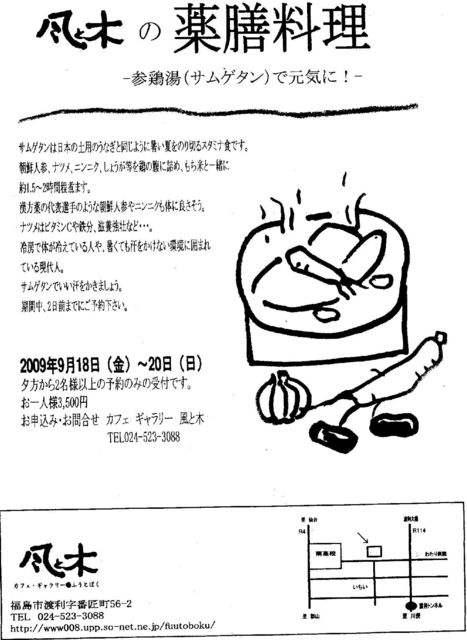 風と木の薬膳料理
-参鶏湯(サムゲタン)で元気に!-
サムゲタンは日本の土用のうなぎと同じように暑い夏をのり切るスタミナ食です。
朝鮮人参、ナツメ、ニンニク、しょうが等を鶏の腹に詰め、もち米と一緒に
約1.5~2時間程煮ます。
漢方薬の代表選手のような朝鮮人参やニンニクも体に良さそう。
ナツメはビタミンCや鉄分、滋養強壮など・・・。
冷房で体が冷えている人や、暑くても汗をかけない環境に囲まれ
ている現代人。
サムゲタンでいい汗をかきましょう。
期間中、2日前までにご予約下さい。
2009年9月18日(金)~20日(日)
夕方から2名様以上の予約のみの受付です。
お一人様3,500円
お申込み・お問合せ カフェ ギャラリー 風と木
TEL024-523-3088
風と木
カフェ・ギャラリー●ふうとぼく
福島市渡利字番匠町56-2
TEL 024-523-3088
http://www008.upp.so-net.ne.jp/fuutoboku/
至 仙台
R4
R114
南高校
わたり病院
いちい
至 郡山
至 川俣